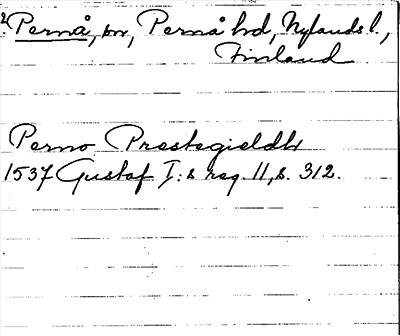 2 Pernå, sn, Pernå hd, Nylands l.,
Finland
Perno Prestegieldh
1537 Gustaf I:s reg. 11, s. 312.